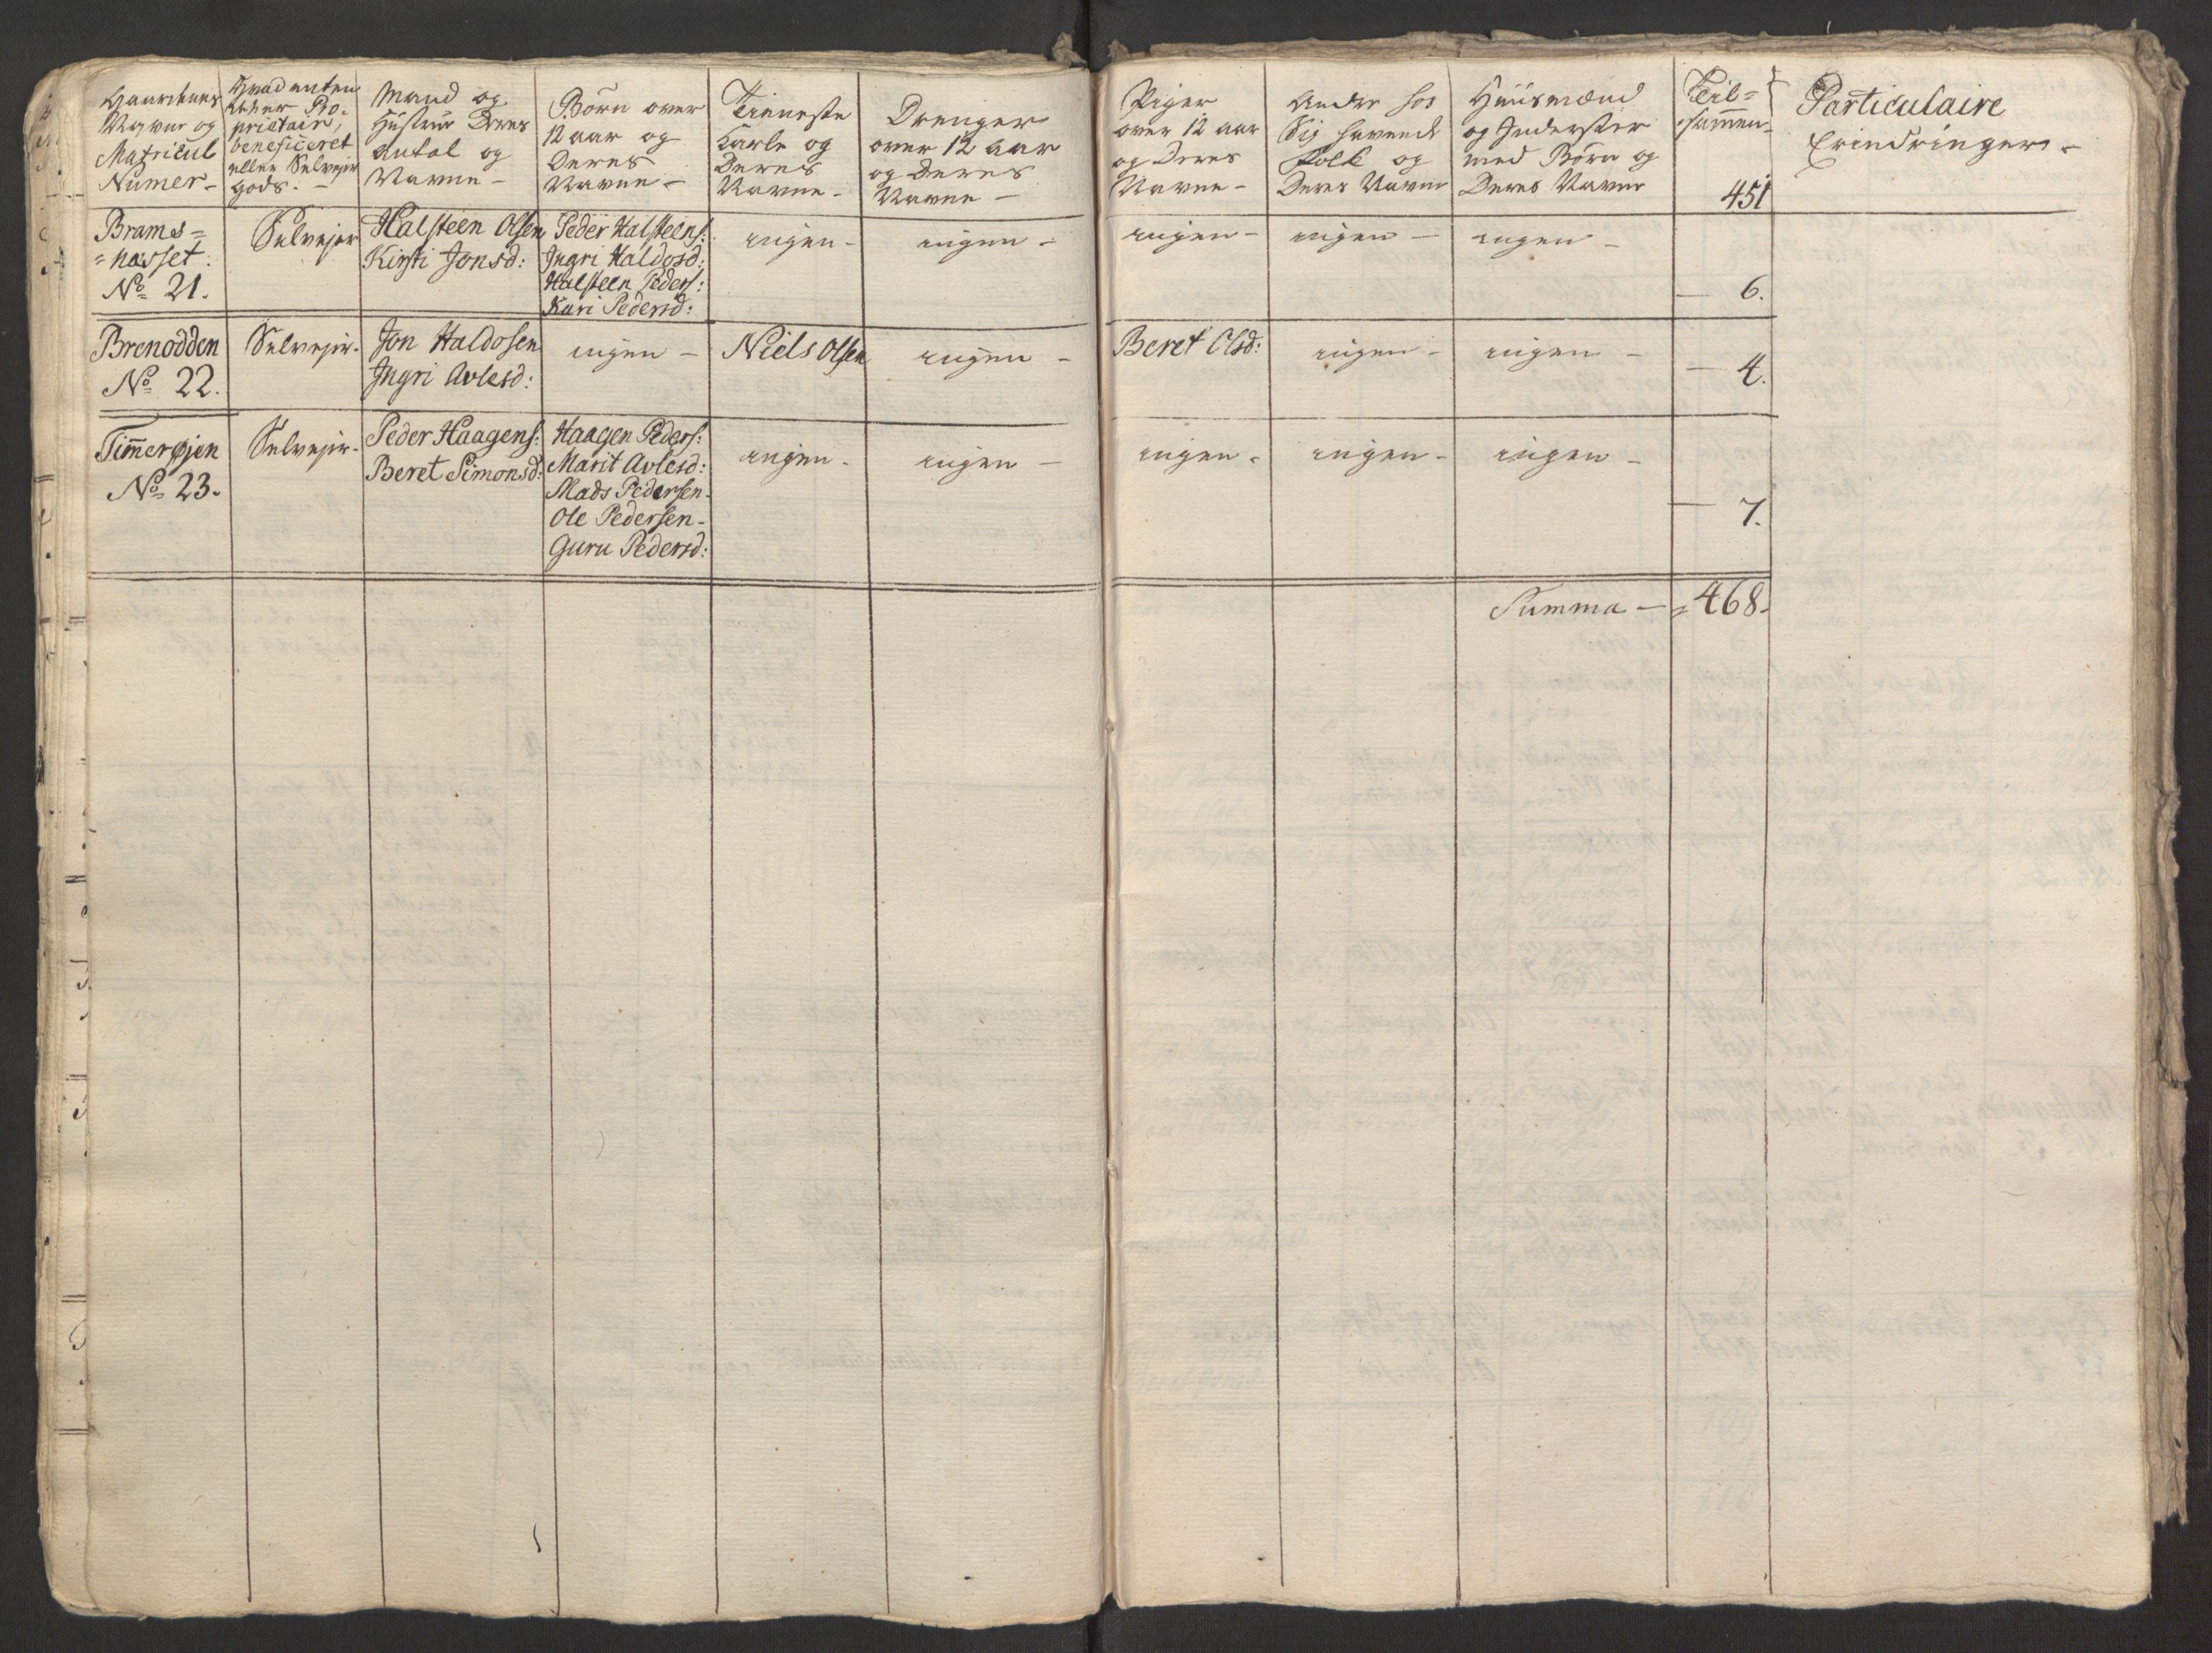 Gaardenes
Navne og
Matricul
Numer-
Hvad enten
Proprietair,
beneficeret
eller Selvejer
gods. -
Mand og
Hustrue Deres
Antal og
Navne -
Börn over
12 aar og
Deres
Navne -
Tieneste
Karle og
Deres
Navne -
Drenger
over 12 aar
og Deres
Navne -
Piger
over 12 aar
og Deres
Navne -
Andre hos
Sig havende
Folk og
Deres Navne
Huusmænd
og Inderster
med Börn og
Deres Navne
Til=
sammen-
451
Particulaire
Erindringer -
Brams=
=næsset.
No 21.
Selvejer
Halsteen Olsen
Kirsti Jonsd:
Peder Halsteens:
Ingri Haldosd:
Halsteen Peders:
Kari Pedersd:
ingen -
ingen -
ingen -
ingen -
ingen -
- 6.
Brenodden
No 22.
Selvejer.
Jon Haldosen
Ingri Avlesd:
ingen -
Niels Olsen
ingen -
Beret Olsd:
ingen -
ingen -
- 4.
Timerøjen
No 23.
Selvejer.
Peder Haagens:
Beret Simonsd:
Haagen Peders:
Marit Avlesd:
Mads Pedersen-
Ole Pedersen-
Guru Pedersd:
ingen -
ingen -
ingen -
ingen -
ingen -
- 7.
Summa - = 468-